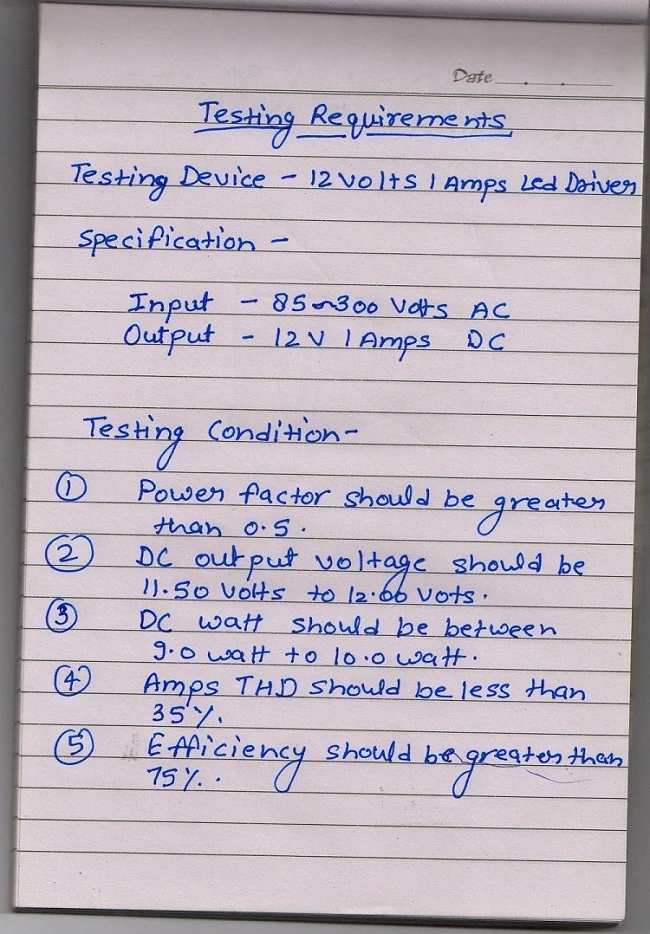 Date
Testing Requirements
Testing Device - 12 Volts 1 Amps Led Driver
Specification -
Input - 85~300 Volts AC
Output - 12 V 1 Amps DC
Testing Condition-
① Power factor should be greater
than 0.5.
② DC output voltage should be
11.50 Volts to 12.60 Vots.
③ DC watt should be between
9.0 watt to 10.0 watt.
④ Amps THD should be less than
35%.
⑤ Efficiency should be greater than
75%.